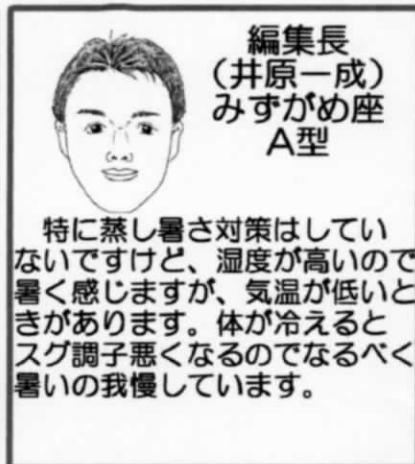 編集長
（井原一成）
みずがめ座
A型
特に蒸し暑さ対策はしてい
ないですけど、湿度が高いので
暑く感じますが、気温が低いと
きがあります。体が冷えると
スグ調子悪くなるのでなるべく
暑いの我慢しています。